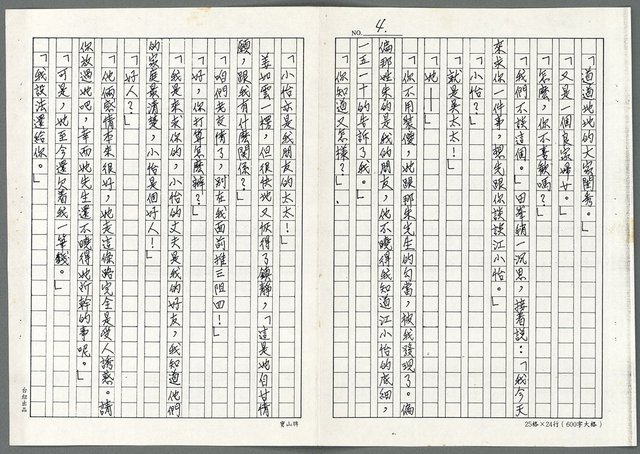 NO. 4.
「道道地地的大家閨秀。」
「又是一個良家婦女。」
「怎麼，你不喜歡嗎？」
「我們不談這個。」田峯稍一沉思，接着說：「我今天
來求你一件事，想先跟你談談江小怡。」
「小怡？」
「就是吳太太！」
「她——」
「你不用裝傻，她跟那朱先生的勾當，被我發現了。偏
偏那姓朱的是我的朋友，他不曉得我知道江小怡的底細，
一五一十的告訴了我。」
「你知道又怎樣？」
「小怡亦是我朋友的太太！」
姜如雪一楞，但很快地又恢得了鎮靜，「這是她自甘情
願，跟我有什麼關係？」
「咱們老交情了，別在我面前推三阻四！」
「好，你打算怎麼辦？」
「我是來求你的，小怡的丈夫是我的好友，我知道他們
的家庭最清楚，小怡是個好人！」
「好人？」
「他倆感情本來很好，她走這條路完全是受人誘惑。請
你放過她吧，幸而她先生還不曉得她所幹的事呢。」
「可是，她至今還欠着我一筆錢。」
「我設法還給你。」
25格×24行(600字大格)
寶山牌
台紐出品